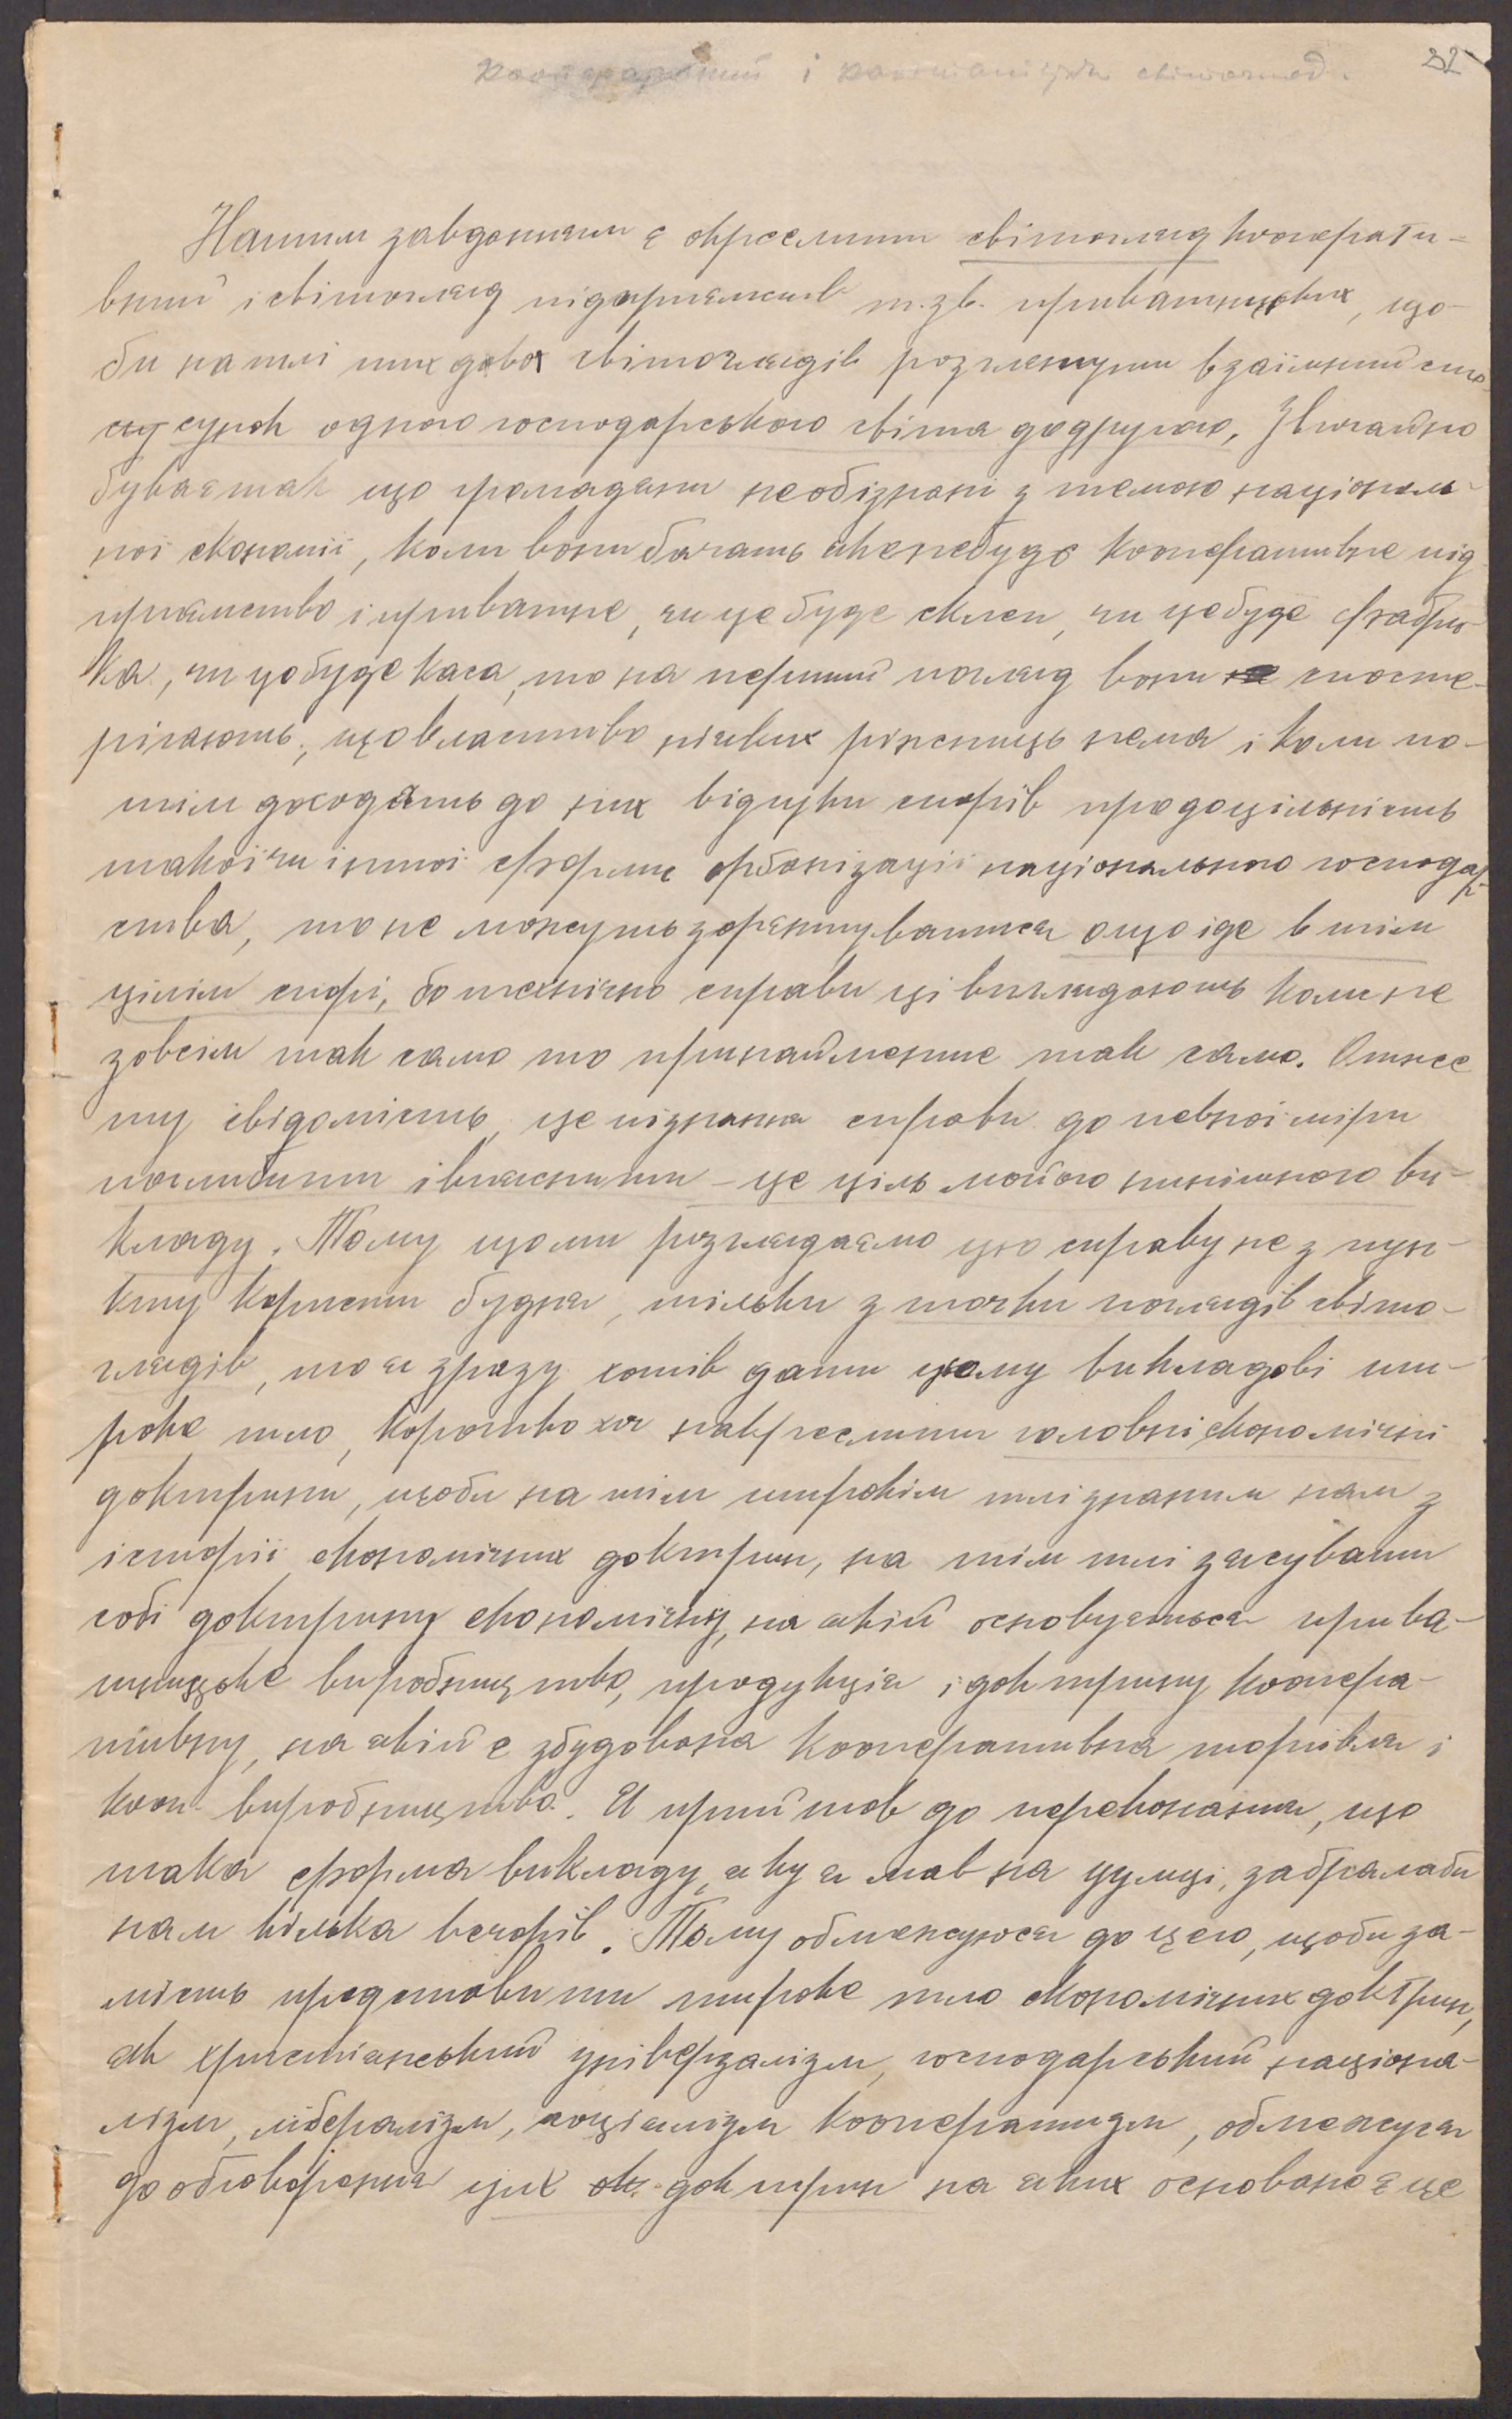 Кооперативний і капіталістичн світогляд.
32
Нашим завданням є окреслити світогляд кооперати-
вний і світогляд підприємств т.зв. приватницьких, що-
би на тлі тих двох світоглядів розглянути взаїмний сто
сунок одного господарського світа до другого. Звичайно
буває так що громадяни необізнані з темою національ-
ної економії, коли вони бачать якенебудь кооперативне під
приємство і приватне, чи це буде склеп, чи це буде фабри-
ка, чи це буде каса, то на перший погляд вони спосте-
рігають, що властиво ніяких ріжниць нема і коли по-
тім доходять до них відгуки спорів про доцільність
такої чи іншої форми орбанізації національного господар-
ства, то не можуть зорєнтуватися о що іде в тім
цілім спорі, бо технічно справи ці виглядають коли не
зовсім так само то принайменше так само. Отже
ту свідомість, це пізнання справи до певної міри
поглибити і вияснити – це ціль мойого нинішного ви-
кладу. Тому що ми розглядаємо цю справу не з пун-
кту користи будня, тільки з точки поглядів світо-
глядів, то я зразу хотів дати цьому викладові ши-
роке тло, коротко хоч накреслити головні економічні
доктрини, щоби на тім широкім тлі знаним нам з
історії економічних доктрин, на тім тлі зясувати
собі доктрину економічну, на якій основується прива-
тницьке виробництво, продукція і доктрину коопера-
тивну, на якій є збудована кооперативна торгівля і
кооп. виробництво. Я прийшов до переконання, що
така форма викладу, яку я мав на думці, забралаби
нам кілька вечорів. Тому обмежуюся до цего, щоби за-
мість представити широке тло економічних доктрин,
як християнський універзалізм, господарський націона-
лізм, лібералізм, соціялізм кооператизм, обмежуся
до обговорення цих ек. доктрин на яких основано є це